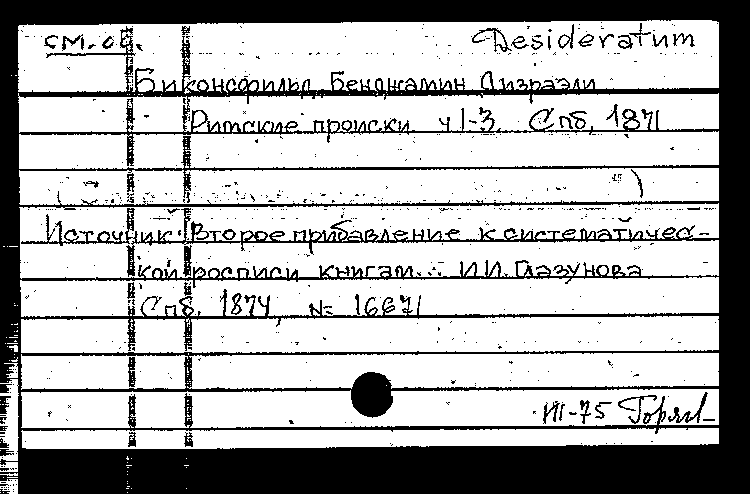 см. об. Desideratum
Биконсфильд, Бенджамин Дизраэли
Римские происки ч 1-3. Спб, 1871
Источник: Второе прибавление к систематичес-
кой росписи книгам... И.И. Глазунова
Спб. 1874, № 16671
III-75